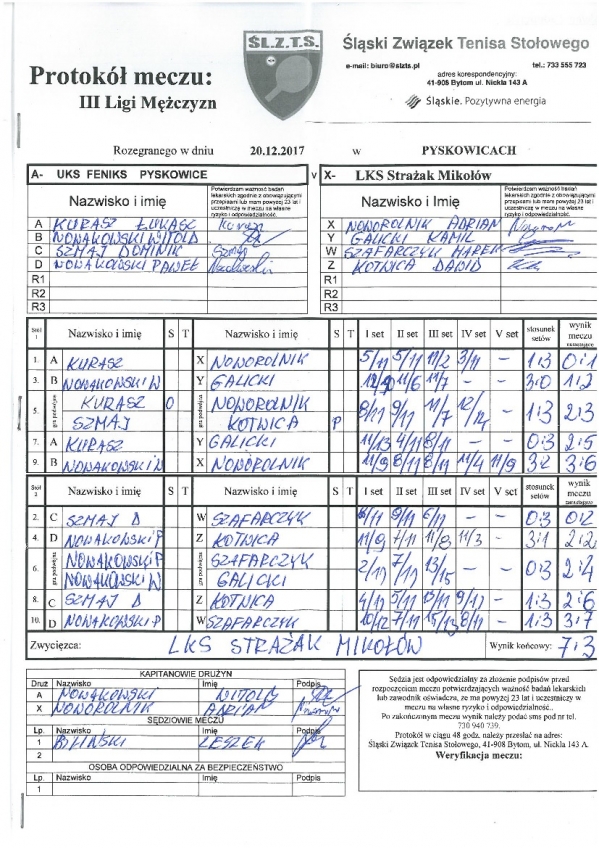 ŚL.Z.T.S.
Śląski Związek Tenisa Stołowego
e-mail: biuro@slzts.pl tel.: 733 555 723
adres korespondencyjny:
41-905 Bytom ul. Nickla 143 A
Śląskie. Pozytywna energia
Protokół meczu:
III Ligi Mężczyzn
Rozegranego w dniu 20.12.2017 w PYSKOWICACH
A- UKS FENIKS PYSKOWICE v X- LKS Strażak Mikołów
Nazwisko i imię Nazwisko i imię
A KURASZ ŁUKASZ X NOWOROLNIK ADRIAN
B NOWAKOWSKI WITOLD Y GALICKI KAMIL
C SZMAJ DOMINIK W SZAFARCZYK MAREK
D NOWAKOWSKI PAWEŁ Z KOTNICA DAWID
R1 R1
R2 R2
R3 R3
Stół 1 Nazwisko i imię S T Nazwisko i imię S T I set II set III set IV set V set stosunek setów wynik meczu
1. A KURASZ X NOWOROLNIK 5/11 5/11 11/2 3/11 - 1:3 0:1
3. B NOWAKOWSKI W Y GALICKI 11/6 11/7 - - 3:0 1:2
5. gra podwójna KURASZ O NOWOROLNIK
SZMAJ KOTNICA P 8/11 9/11 11/7 - 1:3 2:3
7. A KURASZ Y GALICKI 11/13 4/11 8/11 - - 0:3 2:5
9. B NOWAKOWSKI W X NOWOROLNIK 11/9 8/11 8/11 11/4 11/9 3:2 3:6
Stół 2 Nazwisko i imię S T Nazwisko i imię S T I set II set III set IV set V set stosunek setów wynik meczu
2. C SZMAJ D W SZAFARCZYK 6/11 9/11 6/11 - 0:3 0:2
4. D NOWAKOWSKI P Z KOTNICA 11/9 7/11 11/8 11/3 - 3:1 2:2
6. gra podwójna NOWAKOWSKI P SZAFARCZYK
NOWAKOWSKI W GALICKI 2/11 7/11 13/15 - - 0:3 2:4
8. C SZMAJ D Z KOTNICA 4/11 5/11 9/11 - 1:3 2:6
10. D NOWAKOWSKI P W SZAFARCZYK 10/12 7/11 8/11 - 1:3 3:7
Zwycięzca: LKS STRAŻAK MIKOŁÓW Wynik końcowy: 7:3
KAPITANOWIE DRUŻYN
Druż Nazwisko Imię Podpis
A NOWAKOWSKI WITOLD
X NOWOROLNIK ADRIAN
SĘDZIOWIE MECZU
Lp. Nazwisko Imię Podpis
1 BILIŃSKI LESZEK
2
OSOBA ODPOWIEDZIALNA ZA BEZPIECZEŃSTWO
Lp. Nazwisko Imię Podpis
1
Sędzia jest odpowiedzialny za złożenie podpisów przed
rozpoczęciem meczu potwierdzających ważność badań lekarskich
lub zawodnik oświadcza, że ma powyżej 23 lat i uczestniczy w
meczu na własne ryzyko i odpowiedzialność.
Po zakończonym meczu wynik należy podać sms pod nr tel.
730 940 739.
Protokół w ciągu 48 godz. należy przesłać na adres:
Śląski Związek Tenisa Stołowego, 41-908 Bytom, ul. Nickla 143 A.
Weryfikacja meczu: